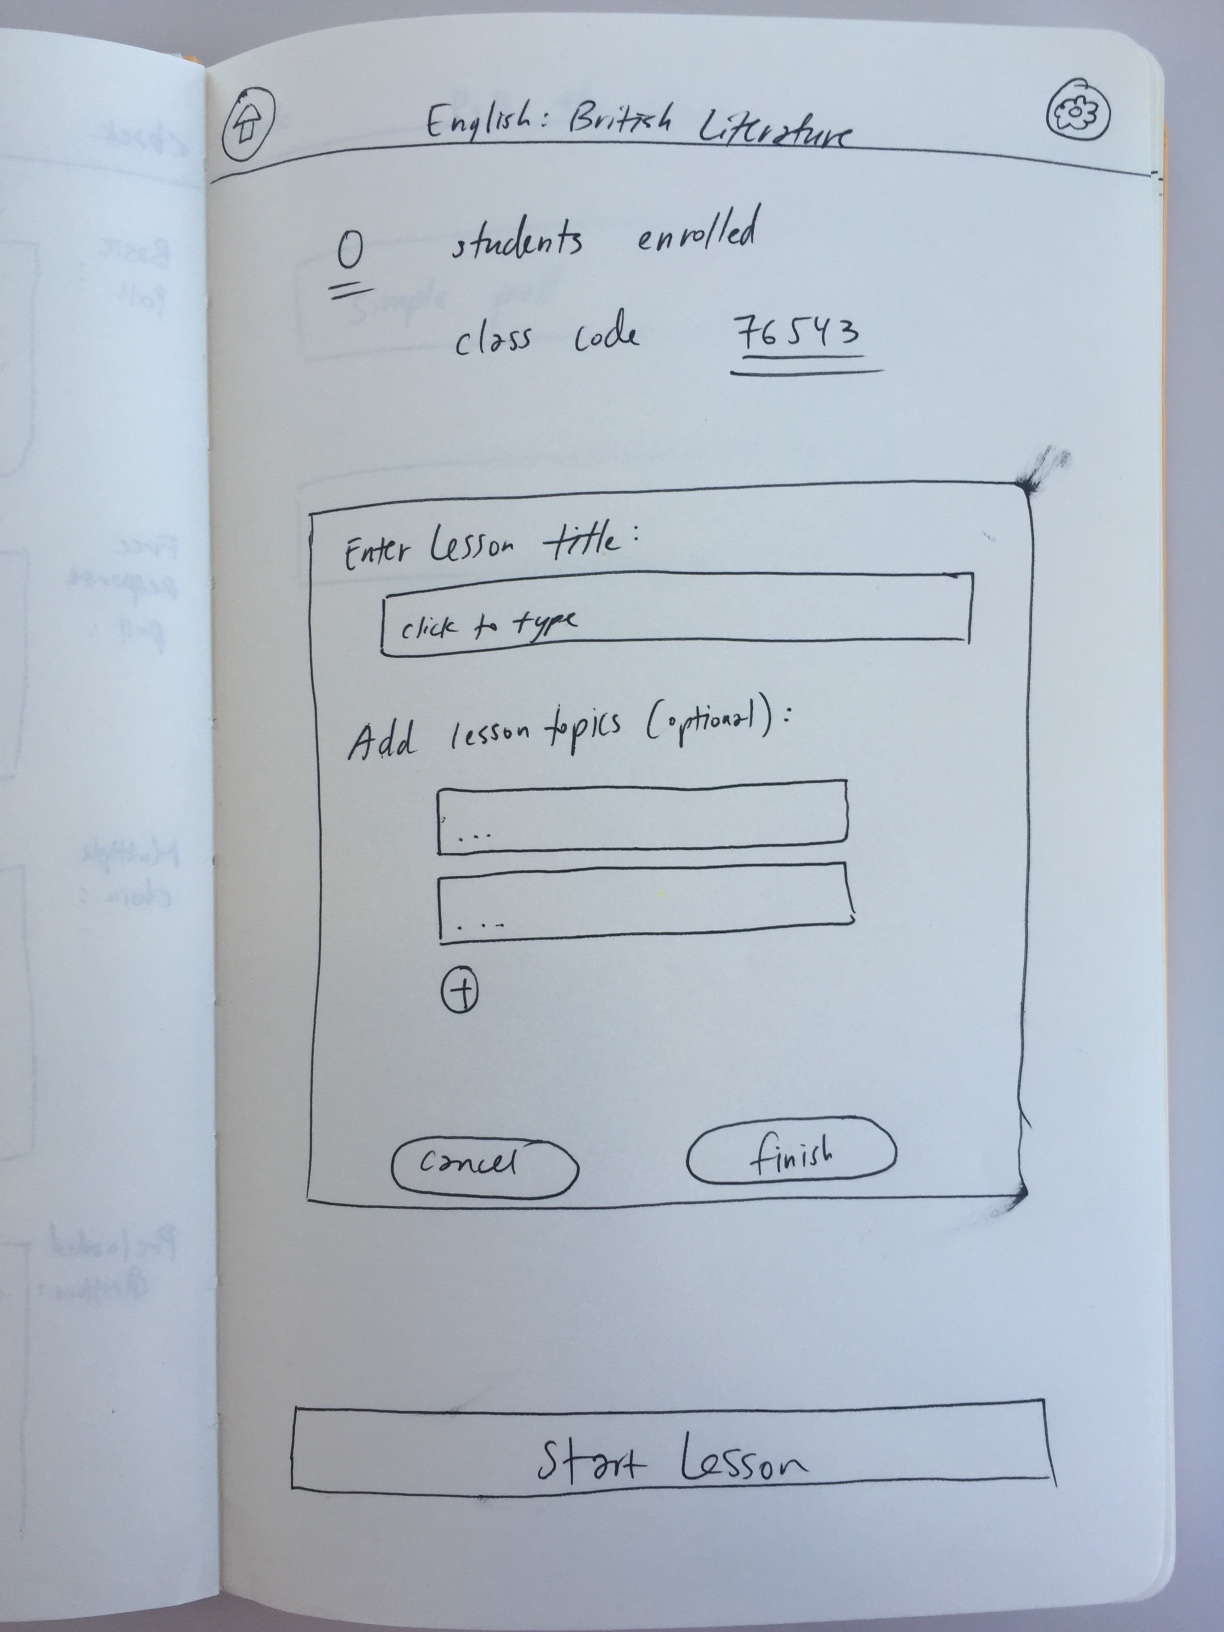 English: British Literature
0 students enrolled
class code 76543
Enter Lesson title:
click to type
Add lesson topics (optional):
...
...
+
cancel finish
Start Lesson